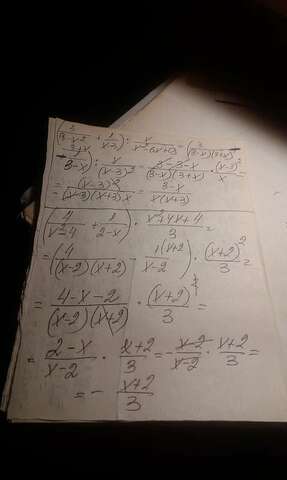 (3/(9-x²) + 1/(x-3)) : x/(x²-6x+9) = (3/((3-x)(3+x)) -
- (3+x)/(3-x)) : x/(x-3)² = (3-3-x)/((3-x)(3+x)) · (x-3)²/x =
= -(x-3)²/((x-3)(x+3)x) = (3-x)/(x(x+3))
(4/(x²-4) + 1/(2-x)) · (x²+4x+4)/3 =
= (4/((x-2)(x+2)) - 1(x+2)/(x-2)) · (x+2)²/3 =
= (4-x-2)/((x-2)(x+2)) · (x+2)²/3 =
= (2-x)/(x-2) · (x+2)/3 = -(x-2)/(x-2) · (x+2)/3 =
= - (x+2)/3